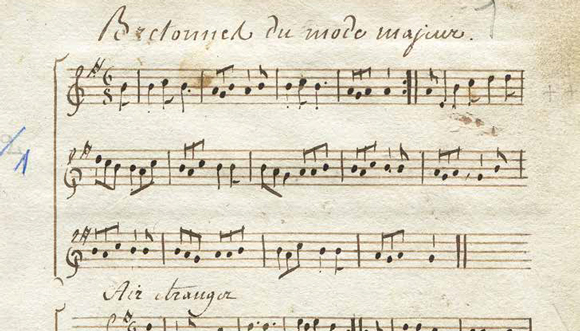 Bretonnel du mode majeur.
6
8
1
Air etranger